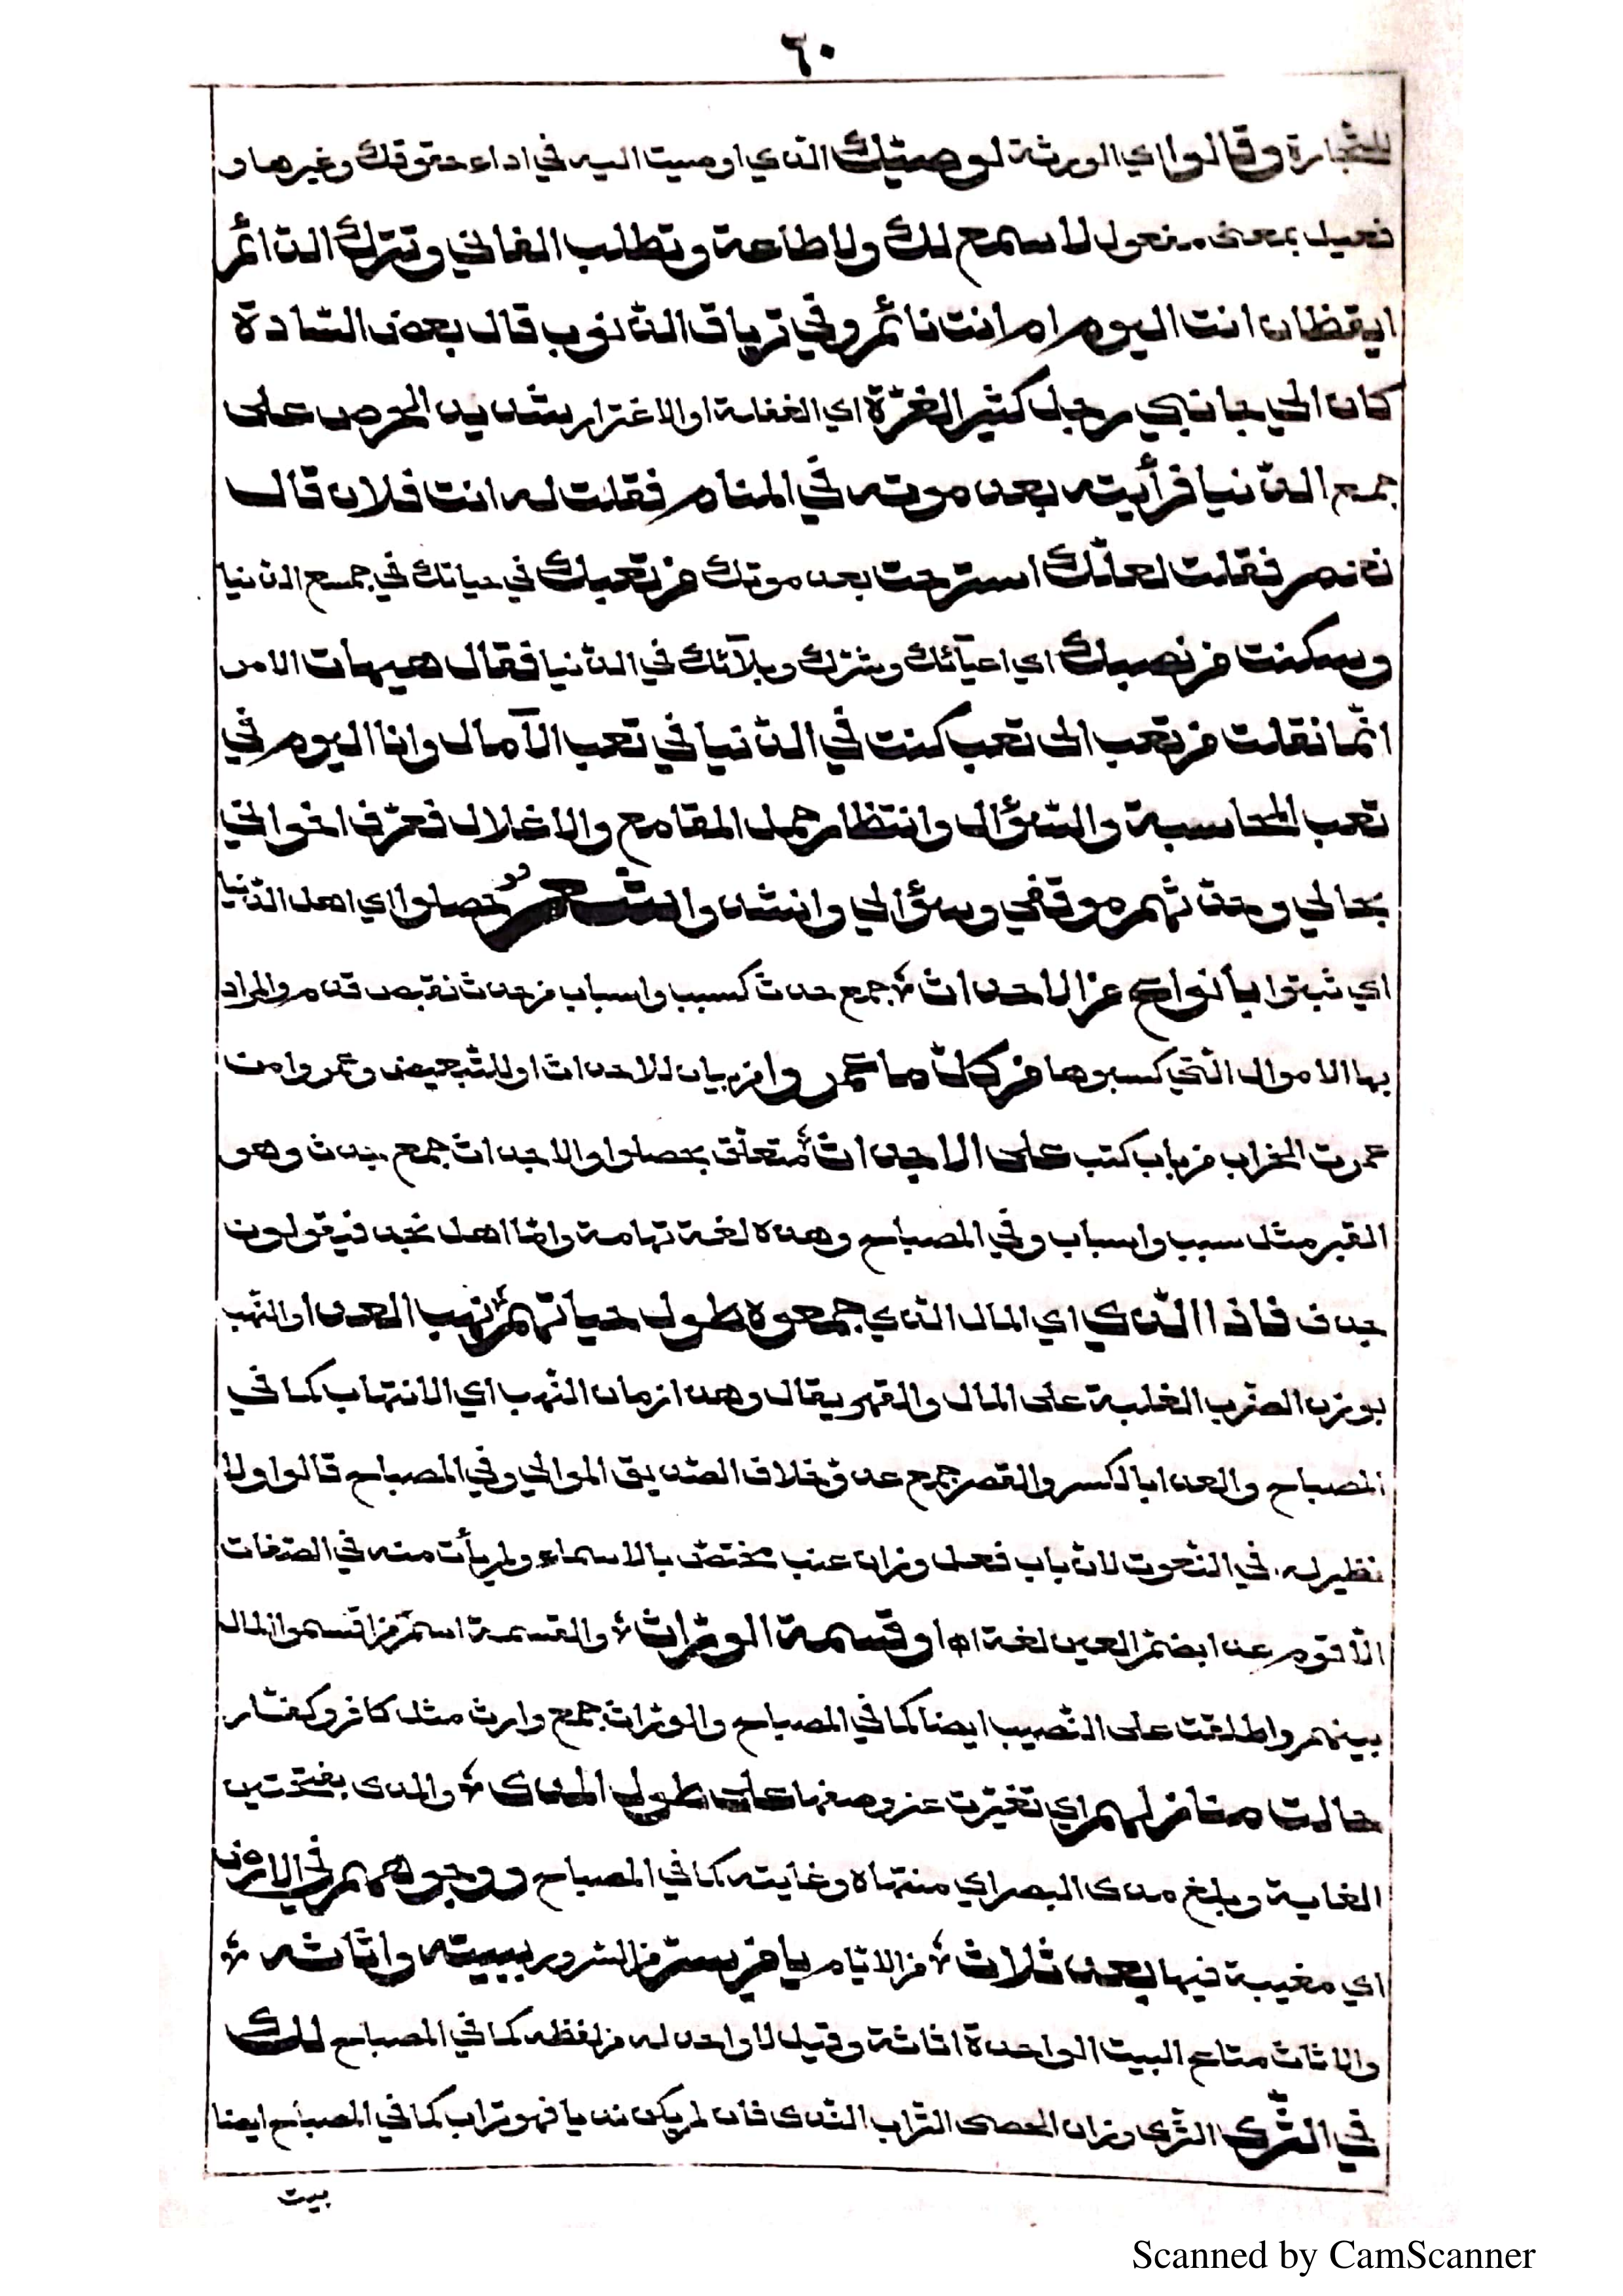 ٦٠
للتّجارة وقالوا اي الورثة لوصيّك الّذي اوصيت اليه في اداء حقوقك وغيرها و
فعيل بمعنى مفعول لا سمع لك ولا طاعة وتطلب الفاني وتترك الدّائم
ايقظان انت اليوم ام انت نائم وفي ترياق الذّنوب قال بعض السّادة
كان الى جانبي رجل كثير الغرّة اي الغفلة او الاغترار شديد الحرص على
جمع الدّنيا فرأيته بعد موته في المنام فقلت له انت فلان قال
نعم فقلت لعلّك استرحت بعد موتك من تعبك في حياتك في جمع الدّنيا
وسكنت من نصبك اي اعيآئك وشرّك وبلآئك في الدّنيا فقال هيهات الامر
انّما نقلت من تعب الى تعب كنت في الدّنيا في تعب الآمال وانا اليوم في
تعب المحاسبة والسّؤال وانتظار حمل المقامع والاغلال فعرّف اخواني
بحالي وحدّثهم موقفي وسؤالي وانشدوا شعر حصلوا اي اهل الدّنيا
اي ثبتوا بأنواع من الاحداث جمع حدث كسبب واسباب من حدث نقيض قدم والمراد
بها الاموال الّتي كسبوها من كلّ ما عمروا من بيان للاحداث او للتّبعيض وعمروا من
عمرت الخراب من باب كتب على الاجداث متعلّق بحصلوا والاجداث جمع جدث وهو
القبر مثل سبب واسباب وفي المصباح وهذه لغة تهامة وامّا اهل نجد فيقولون
جدف فاذا الّذي اي المال الّذي جمعوه طول حياتهم نهب العدا والنّهب
بوزن الضّرب الغلبة على المال والقهر يقال وهذا زمان النّهب اي الانتهاب كما في
المصباح والعدا بالكسر والقصر جمع عدوّ خلاف الصّديق الموالي وفي المصباح قالوا ولا
نظير له في النّعوت لانّ باب فعل وزان عنب مختصّ بالاسماء ولم يأت منه في الصّفات
الّا قوم عدا بضمّ العين لغة اه او قسمة الورّاث والقسمة اسم من اقتسموا المال
بينهم واطلقت على النّصيب ايضا كما في المصباح والورّاث جمع وارث مثل كافر وكفّار
حالت منازلهم اي تغيّرت عن وصفها على طول المدى والمدى بفتحتين
الغاية وبلغ مدى البصر اي منتهاه وغايته كما في المصباح ووجوههم في الارض
اي مغيبة فيها بعد ثلاث من الايّام يا من يسرّ من السّرور ببيته واثاثه
والاثاث متاع البيت الواحدة اثاثة وقيل لا واحد له من لفظه كما في المصباح لك
في الثّرى الثّرى وزان الحصى التّراب النّدى فان لم يكن نديا فهو تراب كما في المصباح ايضا
بيت
Scanned by CamScanner